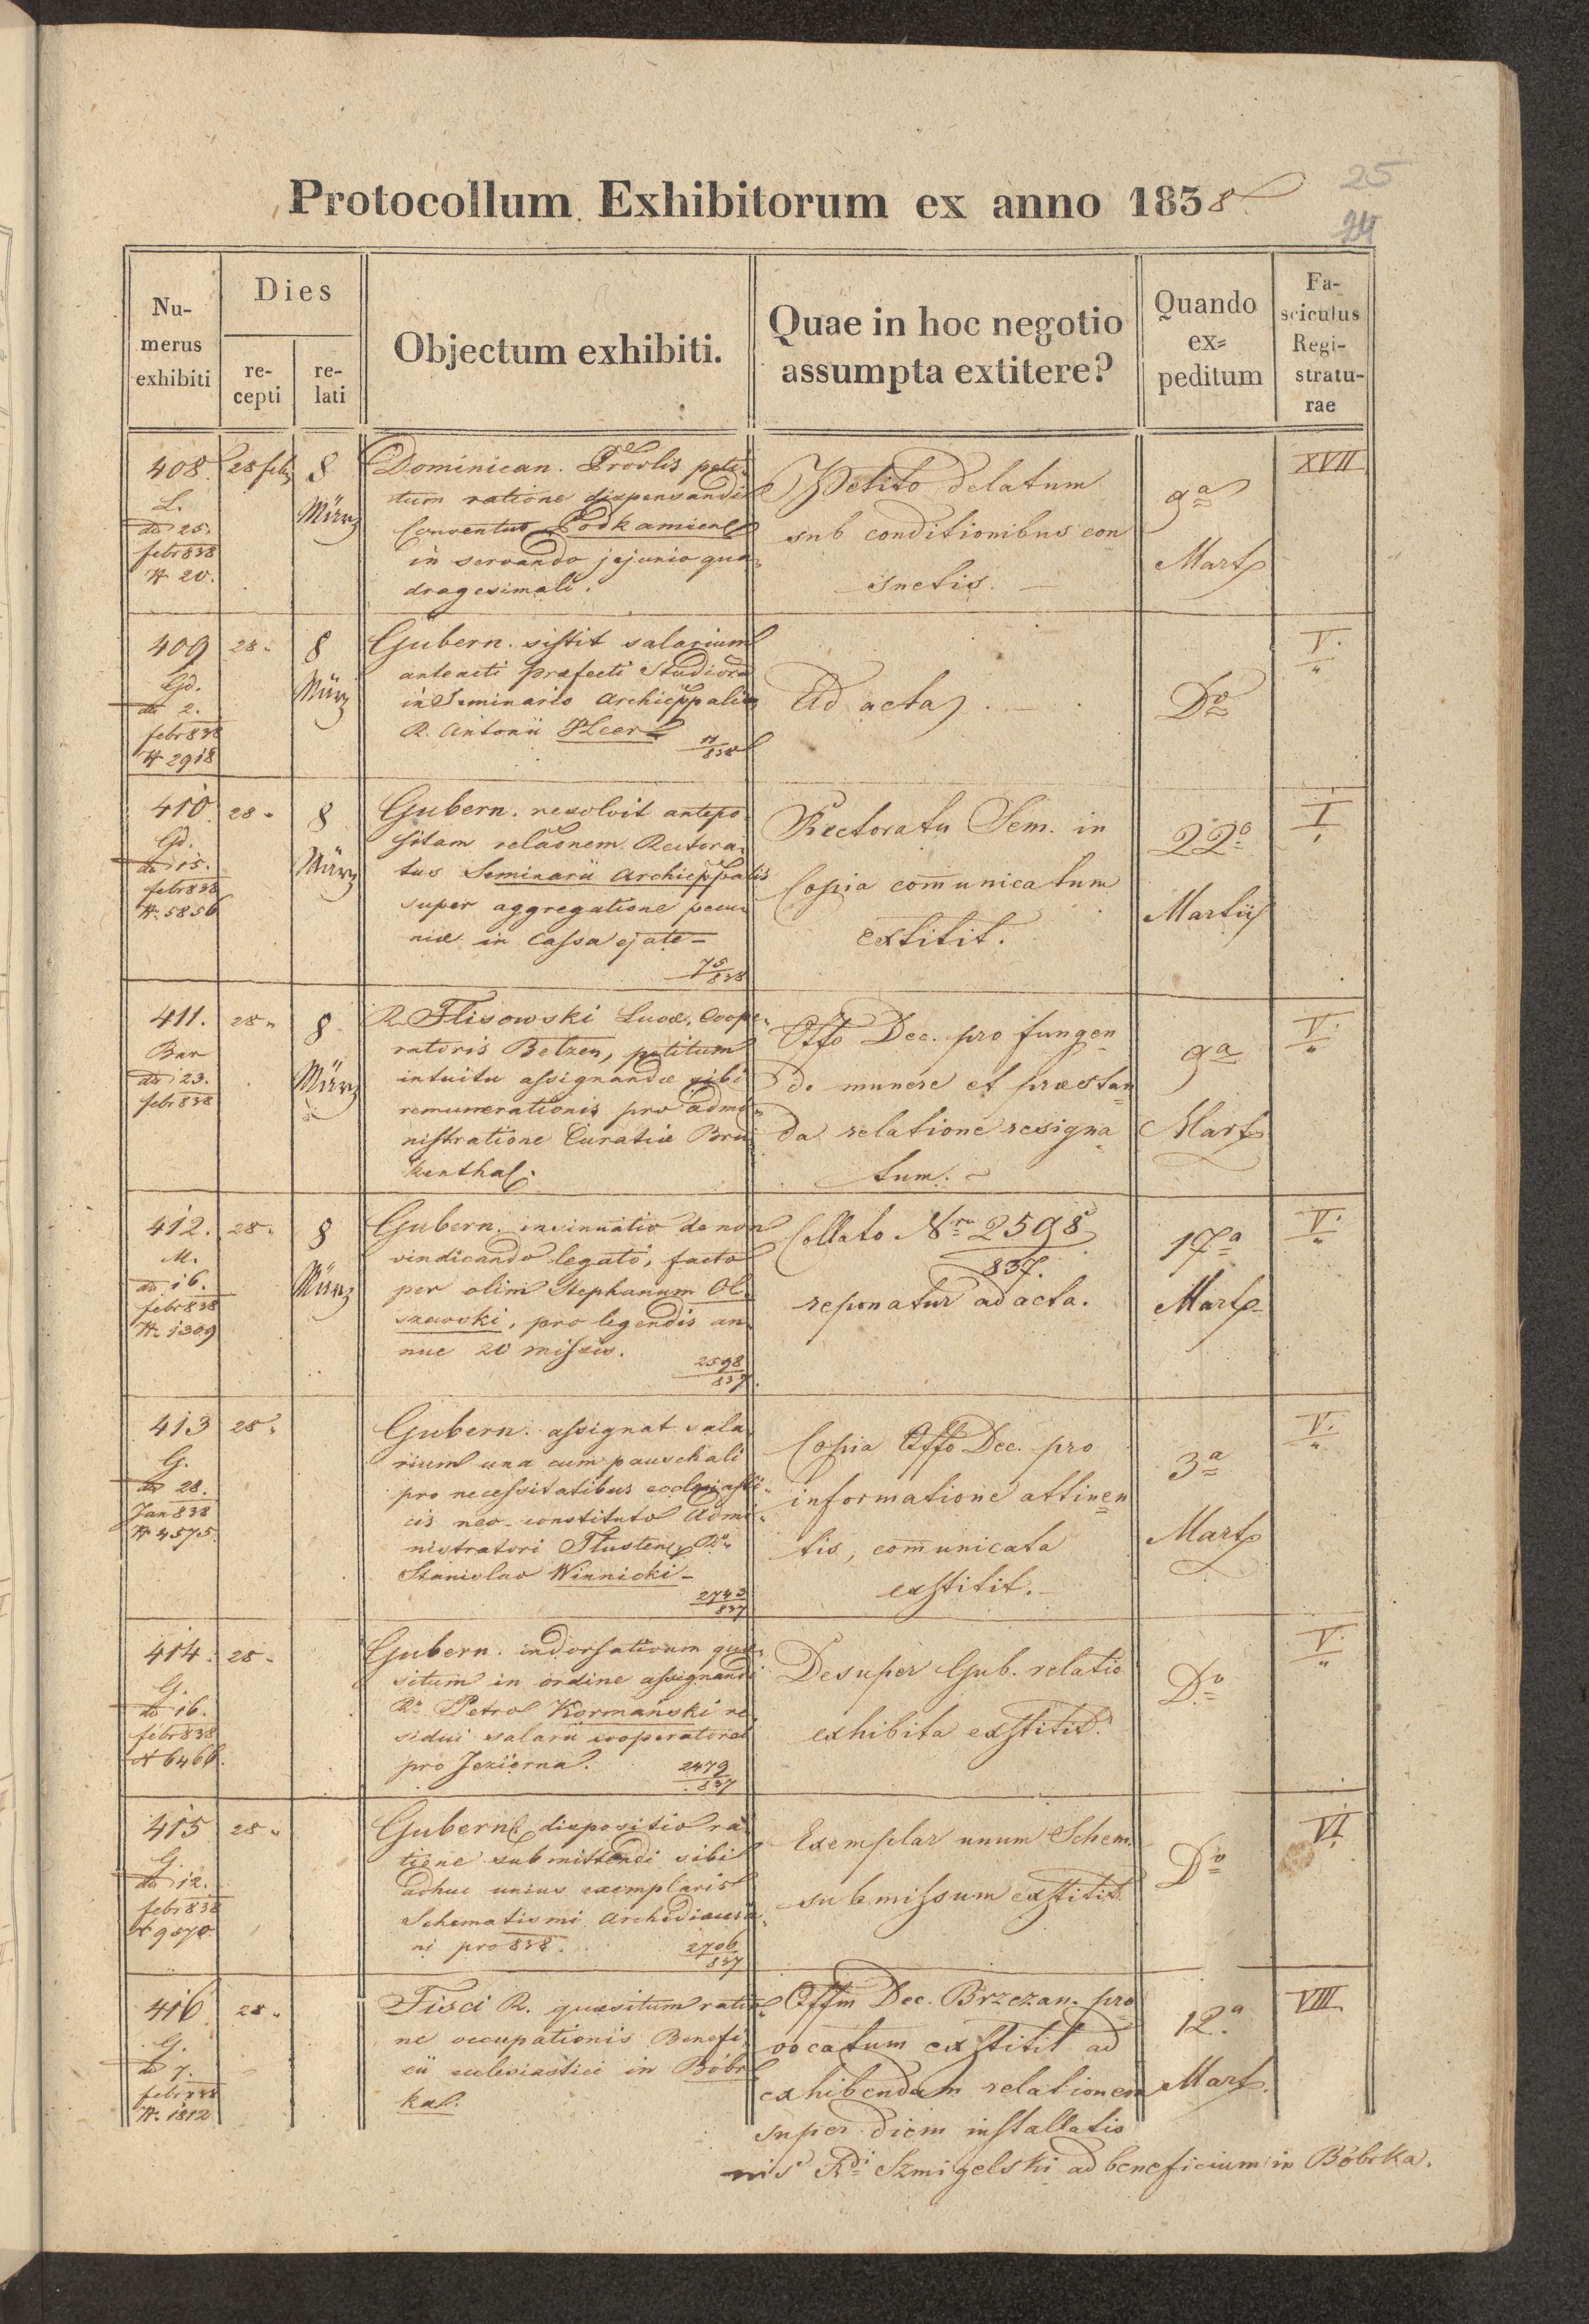 25
24
Protocollum Exhibitorum ex anno 1838
Nu-
merus
exhibiti
Dies
re-
cepti
re-
lati
Objectum exhibiti.
Quae in hoc negotio
assumpta extitere?
Quando
ex=
peditum
Fa-
sciculus
Regi-
stratu-
rae
408.
L.
dto 25.
febr 838
N. 20.
28 feb
8
März
Dominican. Provlis peti-
tum ratione dispensandi
Conventus Podkamien
in servando jejunio qua-
dragesimali.
Petito delatum
sub conditionibus con
suetis.
9a
Mart
XVII
409
Gd.
do 2.
febr 838
N 2918
28
8
März
Gubern. sistit salarium
anteacti præfecti Studior
in Seminario Archieppali
R. Antonii
838
Ad acta.
Do
V.
410.
Gd.
do 15.
febr 838
N. 5856
28
8
März
Gubern. resolvit antepo-
sitam relaonem Rectora-
tus Seminarii Archieppalis
super aggregatione pecu-
niæ in Cassa ejate
75
838
Rectoratu Sem. in
Copia comunicatum
extitit.
22a
Martii
I
411.
Bar
do 23.
febr 838
28
8
März
R. Flisowski Luca, Coope-
ratoris Betzen, petitum
intuitu assignandæ sibi
remunerationis pro admi-
nistratione Curatiæ Bru
kenthal.
Offo Dec. pro fungen
do munere et præstan
da relatione resigna
tum.
9a
Mart
V.
412.
M.
do 16.
febr 838
N. 1309
28
8
März
Gubern. insinuatio de non
vindicando legato, facto
per olim Stephanum Ol-
szewski, pro legendis an-
nue 20 missis.
2598
837.
Collato Nro 2598
837.
reponatur ad acta.
17a
Mart
V.
413
G.
do 28.
Jan 838
N 4575.
28
Gubern. assignat sala-
rium una cum pauschali
pro necessitatibus ecclesiasti-
cis neo-constituto Admi-
nistratori Tłusten, Ro
Stanislao Winnicki
2743
837
Copia Offo Dec. pro
informatione attinen
tis, comunicata
exstitit.
3a
Mart
V.
414.
G.
do 16.
febr 838
N 6466.
28
Gubern. indorsatioum quæ-
situm in ordine assignandi
Ro Petro Kormański re-
sidui salarii cooperatoral
pro Jeziorna.
2479
837
Desuper Gub. relatio
exhibita exstitit.
Do
V.
415
G.
do 12.
febr 838
N 9570
28
Gubern. dispositio ra-
tione submittendi sibi
adhuc unius exemplaris
Schematismi Archidiæcesa-
ni pro 838.
2706
837
Exemplar unum Schem.
submissum exstitit
Do
VI
416
G.
do 7.
febr 838
N. 1812
28
Fisci R. quæsitum ratio-
ne occupationis Benefi-
cii ecclesiastici in Bóbr
ka.
Offm Dec. Brzezan. pro
vocatum exstitit ad
exhibendam relationem
super diem installatio
nis Rdi Szmigelski ad beneficium in Bóbrka.
12.a
Mart.
VIII